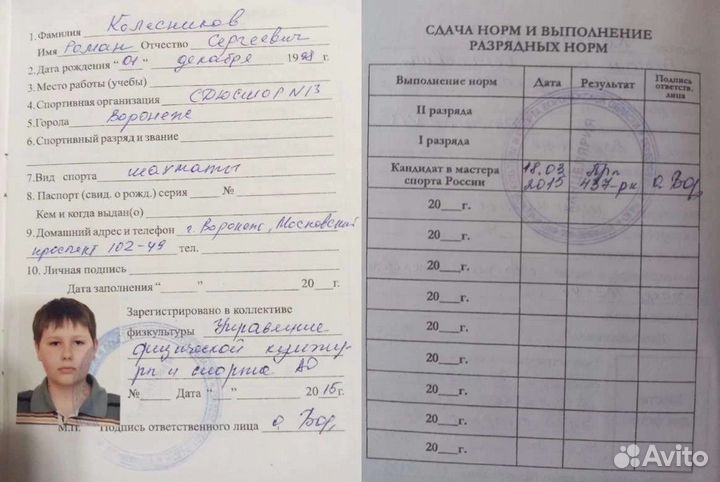 1. Фамилия Колесников
Имя Роман Отчество Сергеевич
2. Дата рождения "01" декабря 1998 г.
3. Место работы (учебы)
4. Спортивная организация СДЮСШОР N13
5. Города Воронеж
6. Спортивный разряд и звание
7. Вид спорта шахматы
8. Паспорт (свид. о рожд.) серия №
Кем и когда выдан(о)
9. Домашний адрес и телефон г. Воронеж, Московский
проспект 102-49 тел.
10. Личная подпись
Дата заполнения " " 20 г.
Зарегистрировано в коллективе
физкультуры Управление
физической культу-
ры и спорта ВО
№ Дата " " 2015г.
М.П. Подпись ответственного лица
СДАЧА НОРМ И ВЫПОЛНЕНИЕ
РАЗРЯДНЫХ НОРМ
Выполнение норм Дата Результат Подпись ответств. лица
II разряда
I разряда
Кандидат в мастера спорта России 18.03 2015 Пр. 437-рк
20 г.
20 г.
20 г.
20 г.
20 г.
20 г.
20 г.
20 г.
20 г.
Avito